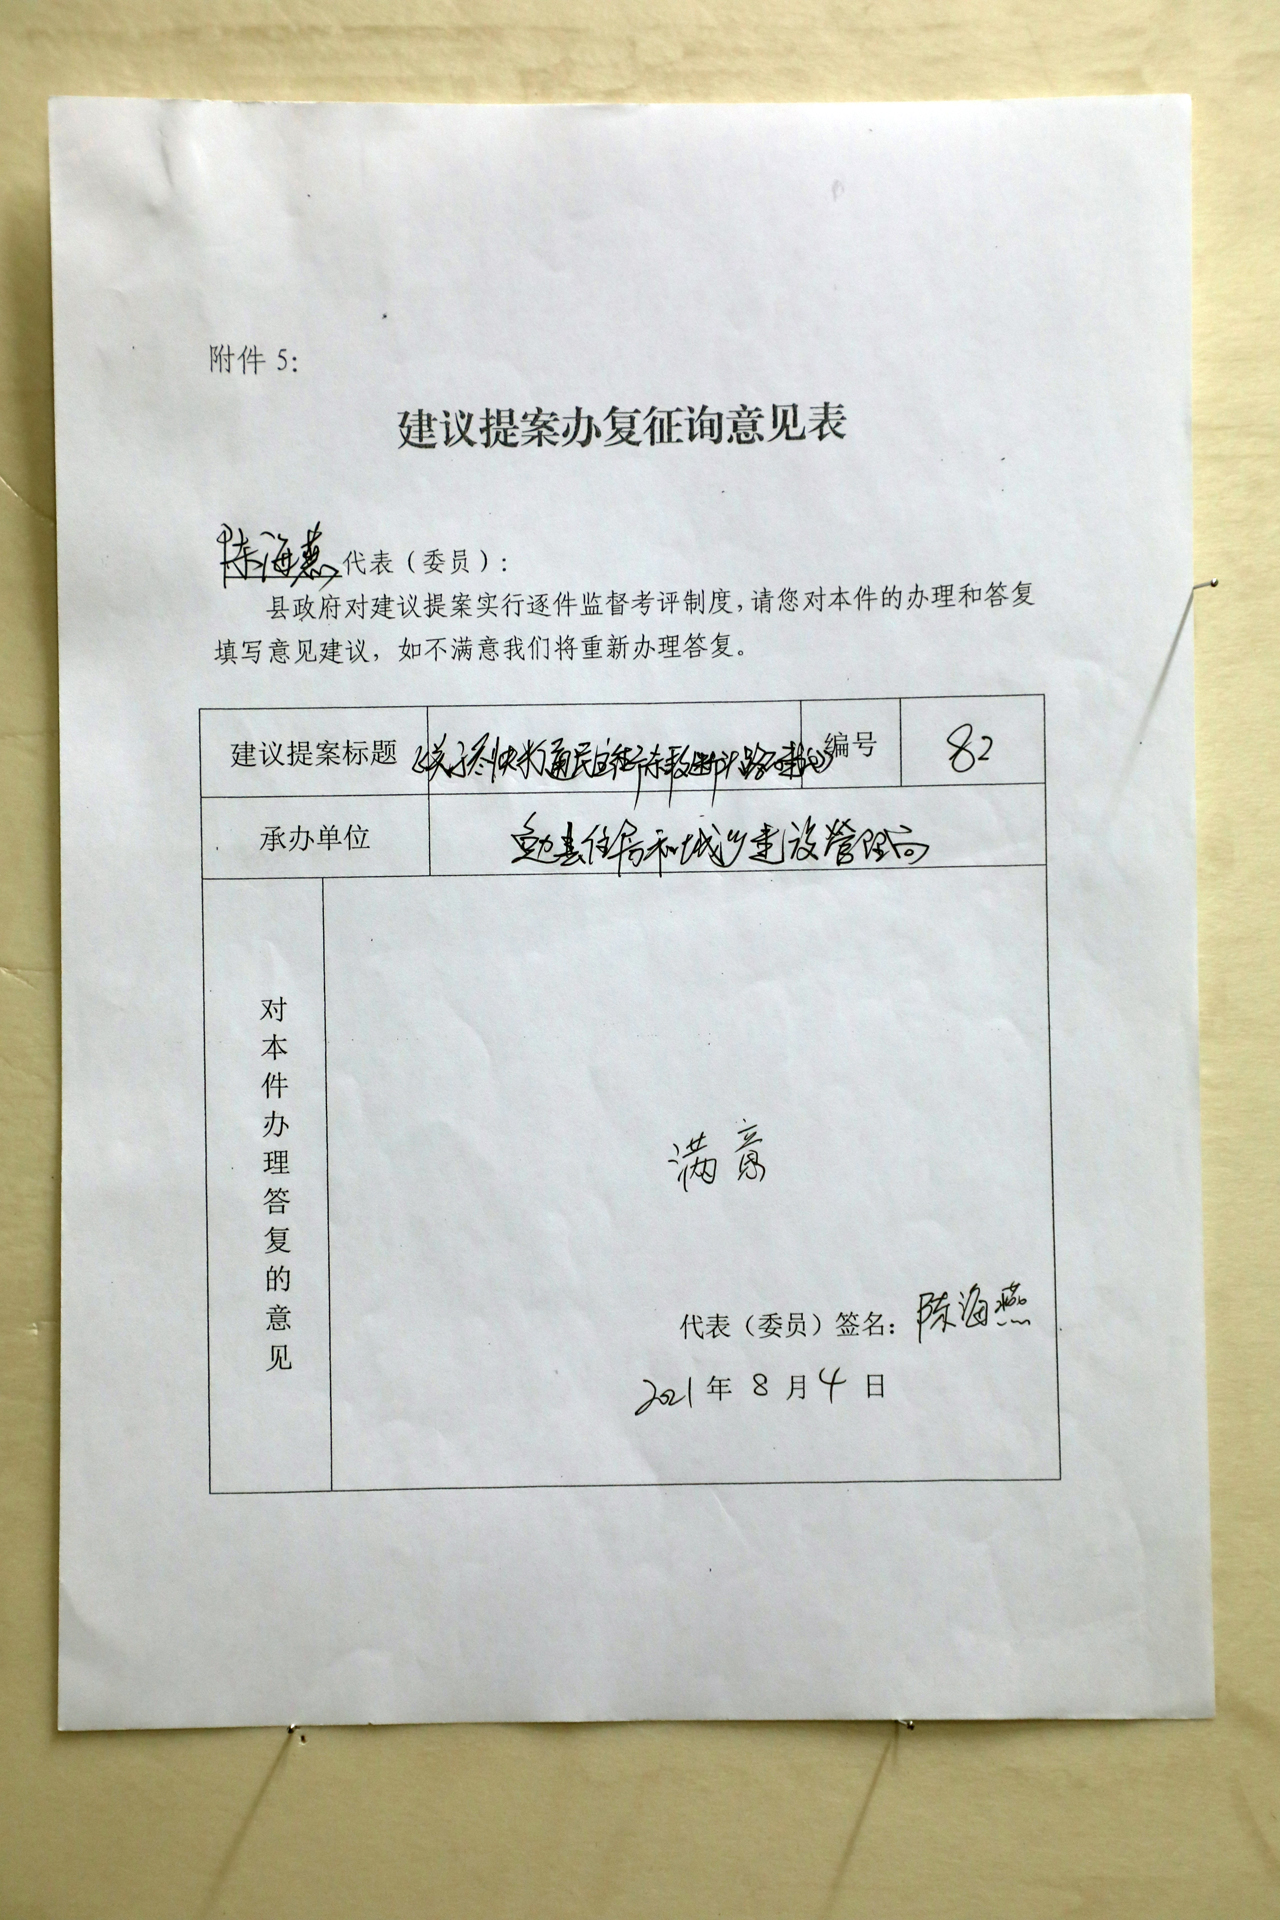 附件 5:
建议提案办复征询意见表
陈海燕代表（委员）:
县政府对建议提案实行逐件监督考评制度,请您对本件的办理和答复
填写意见建议，如不满意我们将重新办理答复。
建议提案标题 《关于尽快打通民主街东段断头路的建议》 编号 82
承办单位 勉县住房和城乡建设管理局
对本件办理答复的意见
满意
代表（委员）签名: 陈海燕
2021 年 8 月 4 日